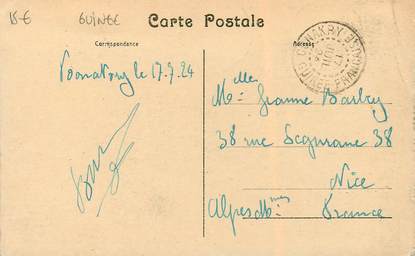 15€ GUINEE
Carte Postale
Correspondance
Adresse
CONAKRY
GUINEE FRANÇAISE
Conakry le 17.7.24
Melle
Jeanne Barbry
38 rue Segurane 38
Nice
Alpes Mmes France